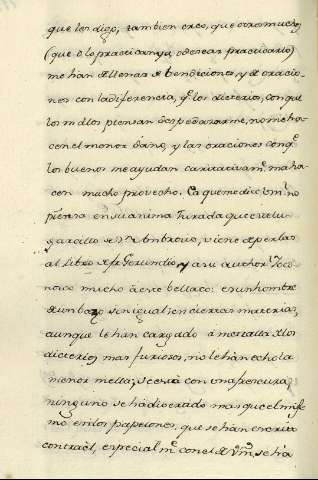 que les digo, tambien creo, que otros muchos
(que ò lo practican ya, o desean practicarlo)
me han de llenar de bendiciones, y de oracio-
nes con la diferencia, q.e los dicterios, con que
los malos piensan despedazarme, no me ha-
cen el menor daño, y las oraciones conq.e
los buenos me ayudan caritativam.te me ha-
cen mucho provecho. Ca que me dice Vm.d no
piensa en su anima Jurada que este lu-
garcillo de S.n Ambrosio, viene de perlas
al Libro de fr. Gerundio, y a su author? Yo co-
nozco mucho à este bellaco: es un hombre
de un bazo sin igual; en ciertas materias,
aunque le han cargado à metralla de los
dicterios mas furiosos, no le hàn echo la
menor mella; se està con una frescura,
ninguno se hà dicerado mas que el mis-
mo en los papelones, que se hàn escrito
contra èl, especialm.te con el de Vm.d se hà